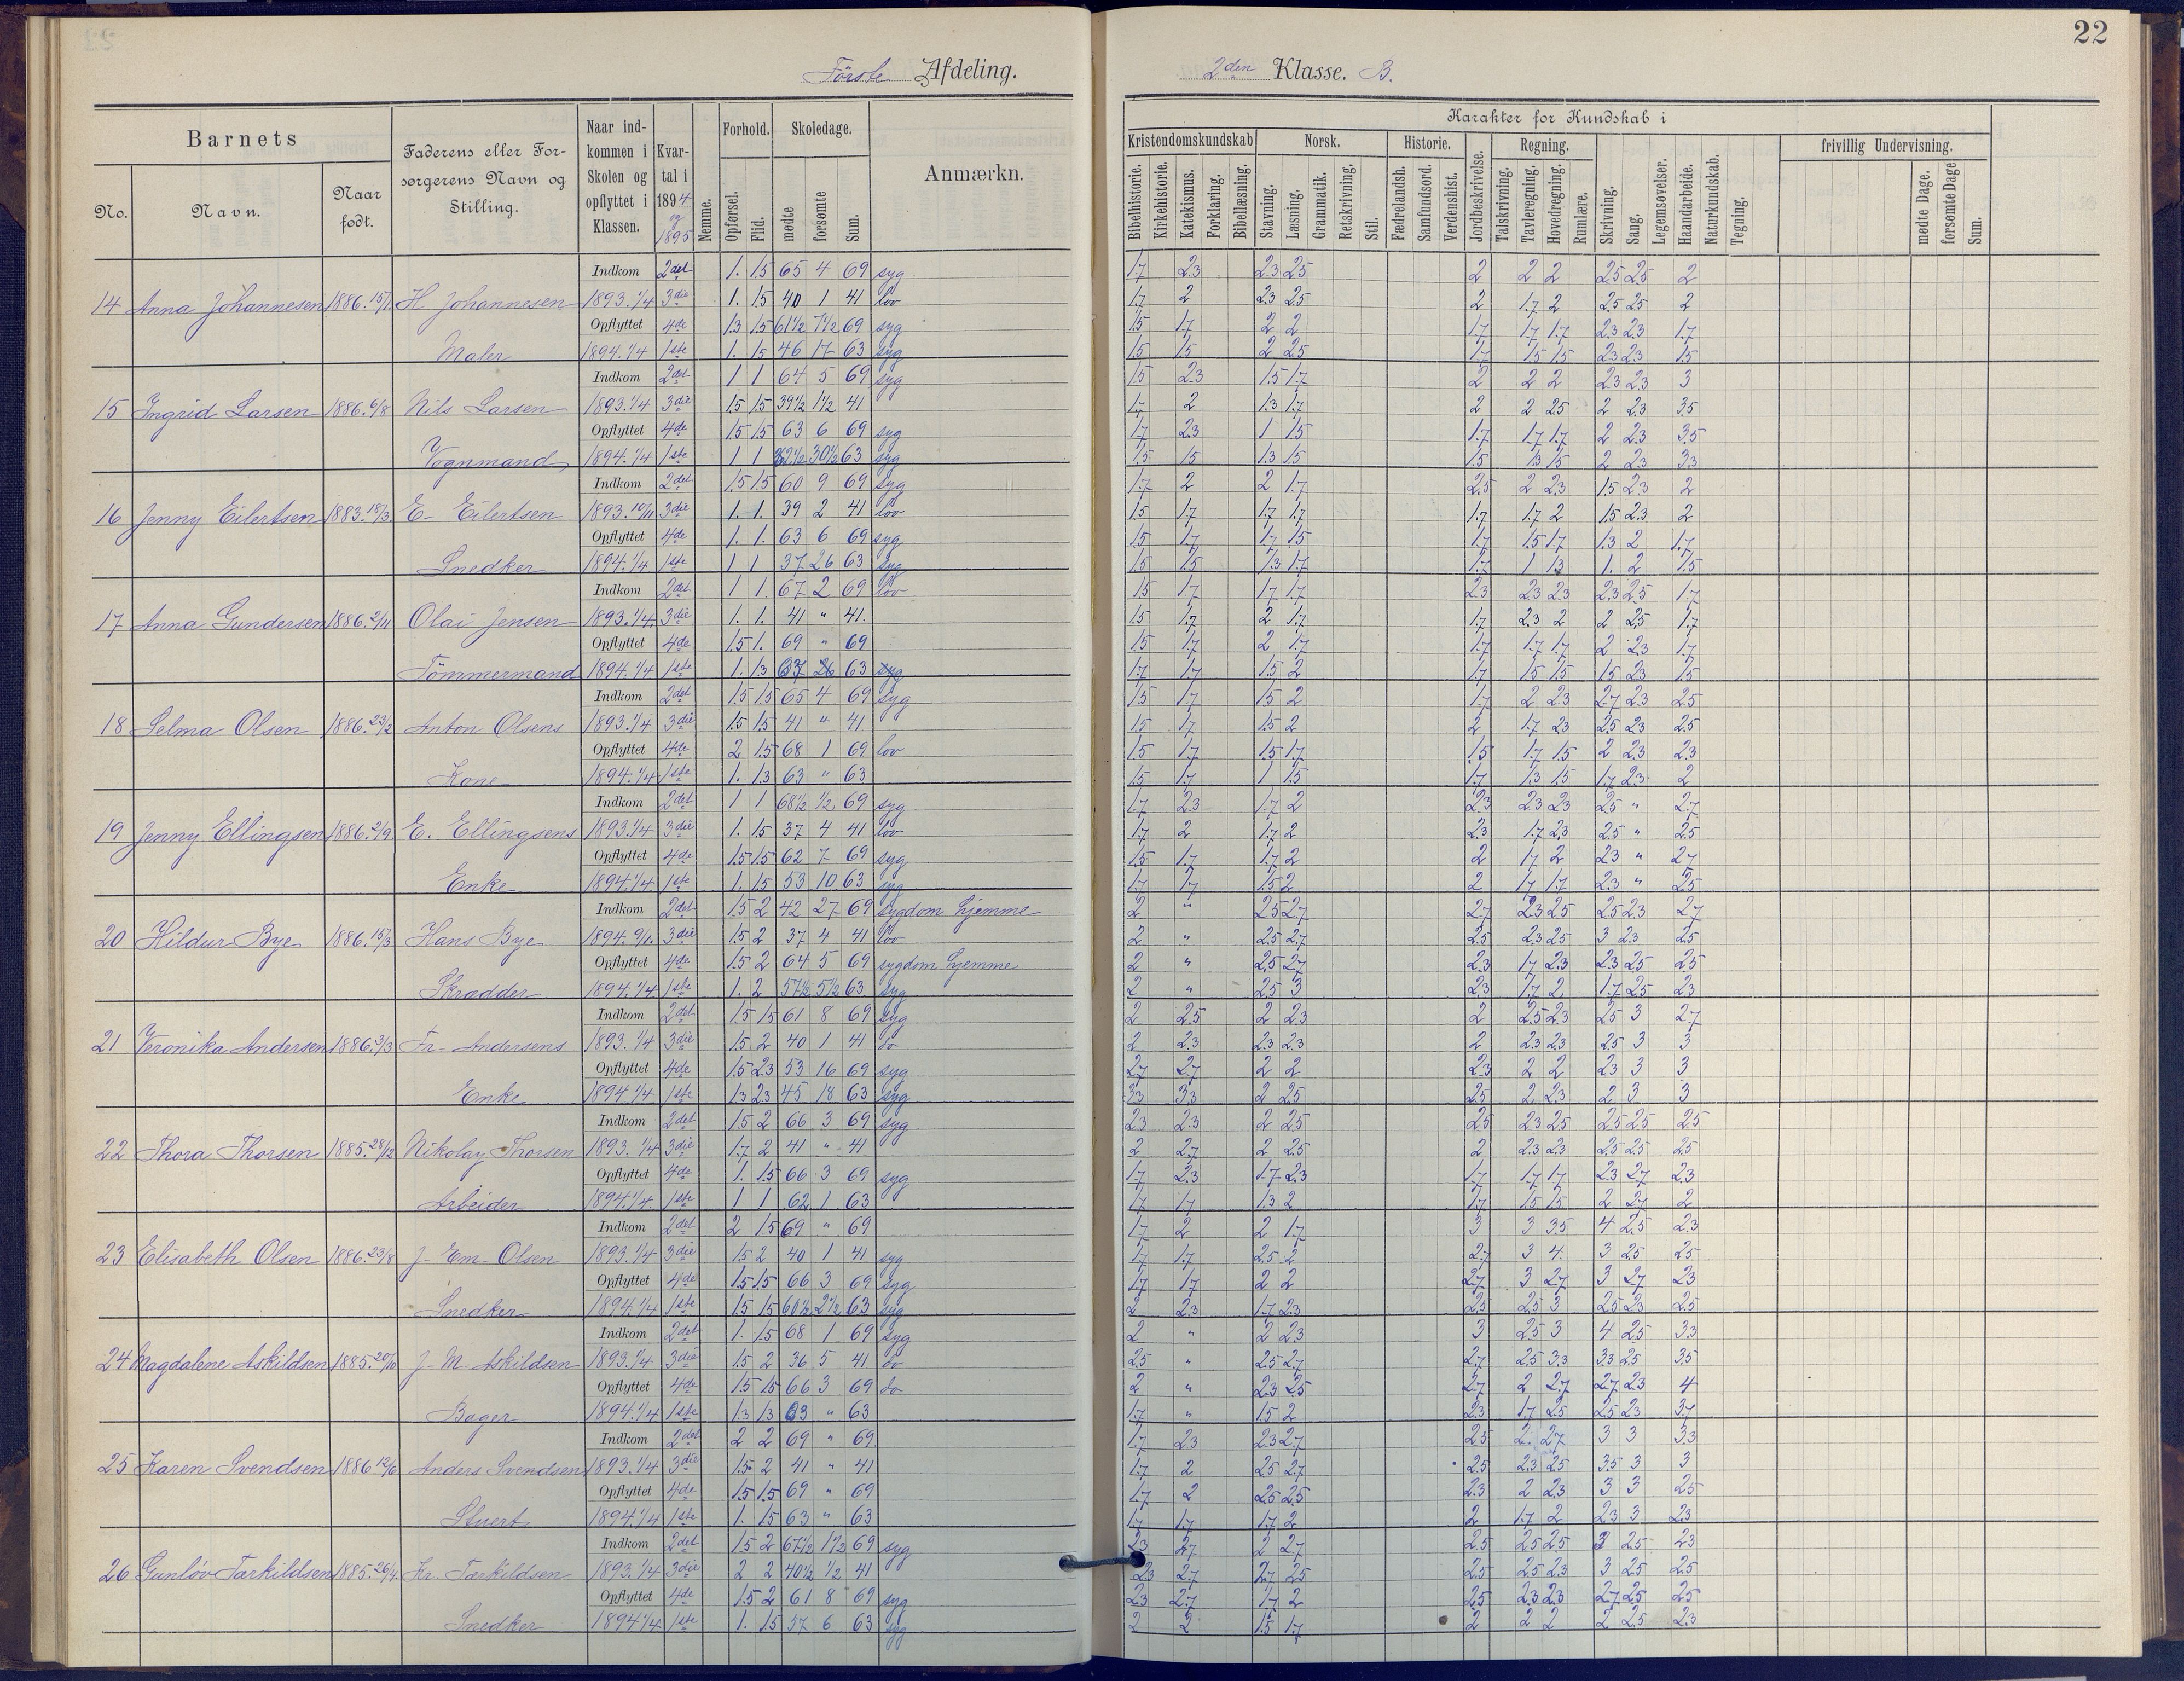 22
Förste Afdeling.
2den Klasse. B.
Barnets
No.
Navn.
Naar født.
Faderens eller Forsørgerens Navn og Stilling.
Naar indkommen i Skolen og opflyttet i Klassen.
Kvartal i 1894 og 1895
Nemme.
Forhold.
Opførsel.
Flid.
Skoledage.
mødte
forsømte
Sum.
Anmærkn.
Karakter for Kundskab i
Kristendomskundskab
Bibelhistorie.
Kirkehistorie.
Katekismus.
Forklaring.
Bibellæsning.
Norsk.
Stavning.
Læsning.
Grammatik.
Retskrivning.
Stil.
Historie.
Fædrelandsh.
Samfundsord.
Verdenshist.
Jordbeskrivelse.
Regning.
Talskrivning.
Tavleregning.
Hovedregning.
Rumlære.
Skrivning.
Sang.
Legemsøvelser.
Haandarbeide.
Naturkundskab.
Tegning.
frivillig Undervisning.
mødte Dage.
forsømte Dage
Sum.
Indkom 2det 1. 1.5 65 4 69 syg 1.7 2.3 2.3 2.5 2 2 2 2.5 2.5 2
14 Anna Johannesen 1886. 15/1. H Johannesen 1893. 1/4 3die 1. 1.5 40 1 41 lov 1.7 2 2.3 2.5 2 1.7 2 2.5 2.5 2
Opflyttet 4de 1.3 1.5 61 1/2 7 1/2 69 syg 1.5 1.7 2 2 1.7 1.7 1.7 2.3 2.3 1.7
Maler 1894. 1/4 1ste 1. 1.5 46 17 63 syg 1.5 1.5 2 2.5 1.7 1.5 1.5 2.3 2.3 1.5
Indkom 2det 1 1 64 5 69 syg 1.5 2.3 1.5 1.7 2 2 2 2.3 2.3 3
15 Ingrid Larsen 1886. 6/8 Nils Larsen 1893. 1/4 3die 1.5 1.5 39 1/2 1 1/2 41 1.7 2 1.3 1.7 2 2 2.5 2 2.3 3.5
Opflyttet 4de 1.5 1.5 63 6 69 syg 1.7 2.3 1 1.5 1.7 1.7 1.7 2 2.3 3.5
Vognmand 1894. 1/4 1ste 1 1 32 1/2 30 1/2 63 syg 1.5 1.5 1.3 1.5 1.5 1.3 1.5 2 2.3 3.3
Indkom 2det 1.5 1.5 60 9 69 syg 1.7 2 2 1.7 2.5 2 2.3 1.5 2.3 2
16 Jenny Eilertsen 1883. 18/3. E- Eilertsen 1893. 10/11 3die 1. 1. 39 2 41 lov 1.5 1.7 1.7 1.7 1.7 1.7 2 1.5 2.3 2
Opflyttet 4de 1. 1. 63 6 69 syg 1.5 1.7 1.7 1.5 1.7 1.5 1.7 1.3 2 1.7
Snedker 1894. 1/4 1ste 1 1 37 26 63 syg 1.5 1.5 1.3 1.7 1.7 1 1.3 1. 2 1.5
Indkom 2det 1 1. 67 2 69 lov 1.5 1.7 1.7 1.7 2.3 2.3 2.3 2.3 2.5 1.7
17 Anna Gundersen 1886. 2/11 Olai Jensen 1893. 1/4. 3die 1. 1. 41 " 41. 1.5 1.7 2 1.7 1.7 2.3 2 2 2.5 1.7
Opflyttet 4de 1.5 1. 69 " 69 1.5 1.7 2 1.7 1.7 1.7 1.7 2 2.3 1.7
Tömmermand 1894. 1/4 1ste 1. 1.3 63 syg 1.7 1.7 1.5 2 1.7 1.5 1.5 1.5 2.3 1.5
Indkom 2det 1.5 1.5 65 4 69 syg 1.5 1.7 1.5 2 1.7 2 2.3 2.7 2.3 2.5
18 Selma Olsen 1886. 23/2 Anton Olsens 1893. 1/4 3die 1.5 1.5 41 " 41 1.5 1.7 1.5 2 2 1.7 2.3 2.5 2.3 2.5
Opflyttet 4de 2 1.5 68 1 69 lov 1.5 1.7 1.5 1.7 1.5 1.7 1.5 2 2.3 2.3
Kone 1894. 1/4 1ste 1. 1.3 63 " 63 1.5 1.7 1 1.5 1.7 1.3 1.5 1.7 2.3 2
Indkom 2det 1 1 68 1/2 1/2 69 syg 1.7 2.3 1.7 2 2.3 2.3 2.3 2.5 " 2.7
19 Jenny Ellingsen 1886. 2/9 E. Ellingsens 1893. 1/4 3die 1. 1.5 37 4 41 lov 1.7 2 1.7 2 2.3 1.7 2.3 2.5 " 2.5
Opflyttet 4de 1.5 1.5 62 7 69 syg 1.5 1.7 1.7 2 2 1.7 2 2.3 " 2.7
Enke 1894. 1/4 1ste 1. 1.5 53 10 63 syg 1.7 1.7 1.5 2 2 1.7 1.7 2.3 " 2.5
Indkom 2det 1.5 2 42 27 69 sygdom hjemme 2 " 2.5 2.7 2.7 2.3 2.5 2.5 2.3 2.7
20 Hildur Bye 1886. 15/3 Hans Bye 1894. 9/1. 3die 1.5 2 37 4 41 lov 2 " 2.5 2.7 2.5 2.3 2.5 3 2.3 2.5
Opflyttet 4de 1.5 2 64 5 69 sygdom hjemme 2 " 2.5 2.7 2.3 1.7 2.3 2.3 2.5 2.5
Skrædder 1894. 1/4 1ste 1. 2 57 1/2 5 1/2 63 syg 2 " 2.5 3 2.3 1.7 2 1.7 2.5 2.3
Indkom 2det 1.5 1.5 61 8 69 syg 2 2.5 2 2.3 2 2.5 2.3 2.5 3 2.7
21 Veronika Andersen 1886. 3/3 Fr- Andersens 1893. 1/4 3die 1.5 2 40 1 41 do 2 2.3 2.3 2.3 2 2.3 2.3 2.5 3 3
Opflyttet 4de 1.5 2.3 53 16 69 syg 2.7 2.7 2 2 2.3 2 2 2.3 3 3
Enke 1894 1/4 1ste 1.3 2.3 45 18 63 syg 3.3 3.3 2 2.5 2.5 2 2.3 2 3 3
Indkom 2det 1.5 2 66 3 69 syg 2.3 2.3 2 2.5 2.5 2.3 2.5 2.5 2.5 2.5
22 Thora Thorsen 1885. 28/12 Nikolay Thorsen 1893. 1/4 3die 1.7 2 41 " 41 2 2.7 2 2.5 2 2.3 2.3 2.5 2.5 2.5
Opflyttet 4de 1. 1.5 66 3 69 syg 1.7 2.3 1.7 2.3 1.7 1.7 1.7 2.3 2.7 2.3
Arbeider 1894. 1/4. 1ste 1 1 62 1 63 1.7 1.7 1.3 2 1.7 1.5 1.5 2 2.7 2
Indkom 2det 2 1.5 69 " 69 1.7 2 2 1.7 3 3 3.5 4 2.5 2.3
23 Elisabeth Olsen 1886. 23/8 J- Em- Olsen 1893. 1/4 3die 1.5 2 40 1 41 syg 1.7 1.7 2.5 2 2.7 3 4. 3 2.5 2.5
Opflyttet 4de 1.5 1.5 66 3 69 syg 1.7 1.7 2 2 2.7 3 2.7 3 2.7 2.3
Snedker 1894. 1/4 1ste 1.5 1.5 60 1/2 2 1/2 63 syg 2 2.3 1.7 2.3 2.5 2.5 3 2.5 2.3 2.5
Indkom 2det 1. 1.5 68 1 69 syg 2 " 2 2.3 3 2.5 3 4 2.5 3.3
24 Magdalene Askildsen 1885. 20/10 J- M- Askildsen 1893. 1/4 3die 1.5 2 36 5 41 do 2.5 " 2.5 2.7 2.7 2.5 3.3 3.3 2.5 3.5
Opflyttet 4de 1.5 1.5 66 3 69 do 2 " 2.3 2.5 2.7 2 2.7 2.7 2.3 4
Bager 1894. 1/4 1ste 1.3 1.3 63 " 63 1.7 " 1.5 2 2.3 1.7 2.5 2.5 2.3 3.7
Indkom 2det 2 2 69 " 69 1.7 2.3 2.3 2.7 2.5 2. 2.7 3 3 3.3
25 Karen Svendsen 1886 12/6 Anders Svendsen 1893. 1/4 3die 1.5 2 41 " 41 1.7 2 2.5 2.7 2.5 2.3 2.5 3.5 3 3
Opflyttet 4de 1.5 1.5 69 " 69 1.7 2 2.5 2.5 2.3 2 2.3 3 3 2.5
Stuert 1894 1/4 1ste 1. 1.5 63 " 63 1.7 1.7 1.7 2 2 1.7 2 2.3 3 2.3
Indkom 2det 1.5 2 67 1/2 1 1/2 69 syg 2.3 2.7 2 2.7 2.5 2.5 2.5 3 2.5 2.3
26 Gunlöv Tarkildsen 1885. 26/4. Kr. Tarkildsen 1893. 1/4 3die 2 2 40 1/2 1/2 41 2.3 2.7 2.7 2.5 2.5 2.5 2.3 3 2.5 2.5
Opflyttet 4de 1.5 2 61 8 69 syg 2.3 2.7 1.7 2 2.5 2.3 2.3 2.7 2.5 2.5
Snedker 1894 1/4 1ste 1. 1.5 57 6 63 syg 2 2 1.5 1.7 2 2 2 2 2.5 2.3